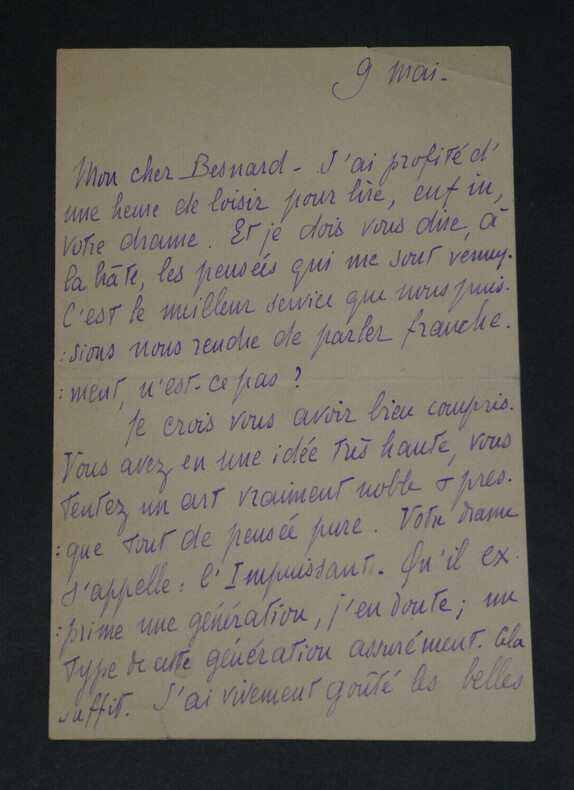 9 Mai.
Mon cher Besnard - J'ai profité d'
une heure de loisir pour lire, enfin,
votre drame. Et je dois vous dire, à
la hâte, les pensées qui me sont venues.
C'est le meilleur service que nous puis-
:sions nous rendre de parler franche.
:ment, n'est-ce pas ?
Je crois vous avoir bien compris.
Vous avez en une idée très haute, vous
Tentez un art vraiment noble & pres.
:que tout de pensée pure. Votre drame
s'appelle : l'Impuissant. Qu'il ex.
:prime une génération, j'en doute ; un
Type de cette génération assurément. Cela
suffit. J'ai vivement goûté les belles